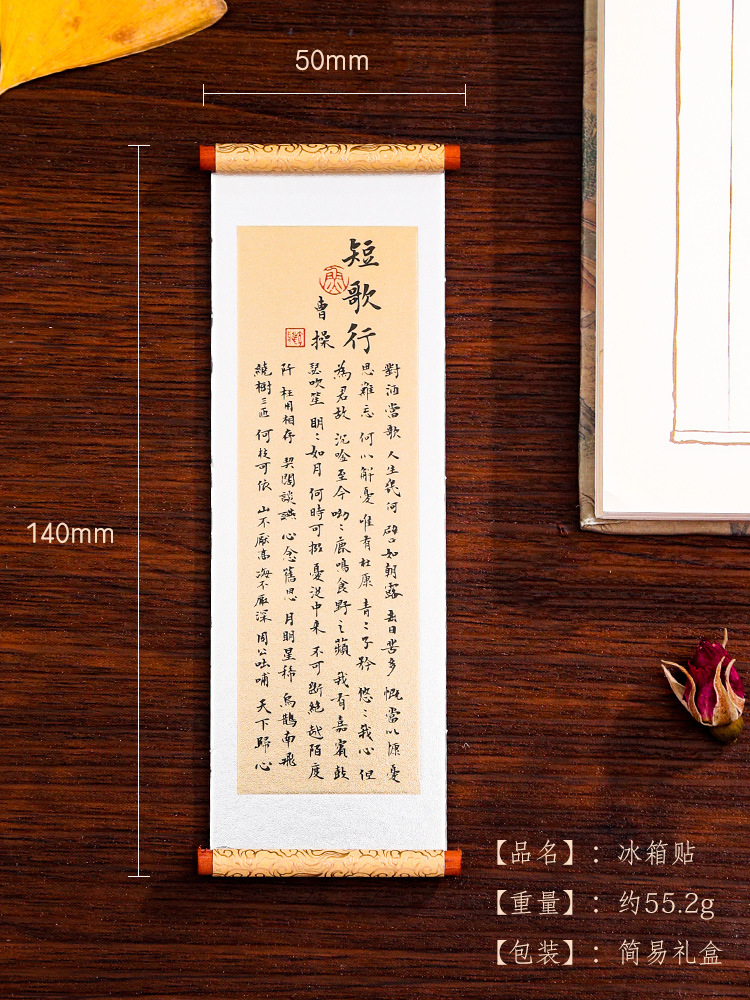 50mm
140mm
短歌行
曹操
對酒當歌 人生幾何 譬如朝露 去日苦多 慨當以慷 憂
思難忘 何以解憂 惟有杜康 青〻子衿 悠〻我心 但
為君故 沉吟至今 呦〻鹿鳴 食野之蘋 我有嘉賓 鼓
瑟吹笙 明〻如月 何時可掇 憂從中來 不可斷絕 越陌度
阡 枉用相存 契闊談讌 心念舊恩 月明星稀 烏鵲南飛
繞樹三匝 何枝可依 山不厭高 海不厭深 周公吐哺 天下歸心
【品名】：冰箱贴
【重量】：约55.2g
【包装】：简易礼盒